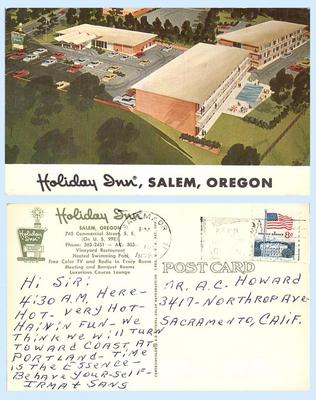 Holiday Inn®, SALEM, OREGON
Holiday Inn®
SALEM, OREGON
745 Commercial Street, S. E.
(On U. S. 99E)
Phone: 363-2451 - AC 503
Vineyard Restaurant
Heated Swimming Pool,
Free Color TV and Radio in Every Room
Meeting and Banquet Rooms
Luxurious Cocktail Lounge
Hi Sir:
4:30 A.M. Here-
Hot- Very Hot-
Havin Fun- We
Think we will turn
Toward Coast at
Portland- Time
is the Essence-
Behave Your-self-
Irma + Sans
PM
8c
POST CARD
Mr. A.C. Howard
3417- Northrop Ave
Sacramento, Calif.